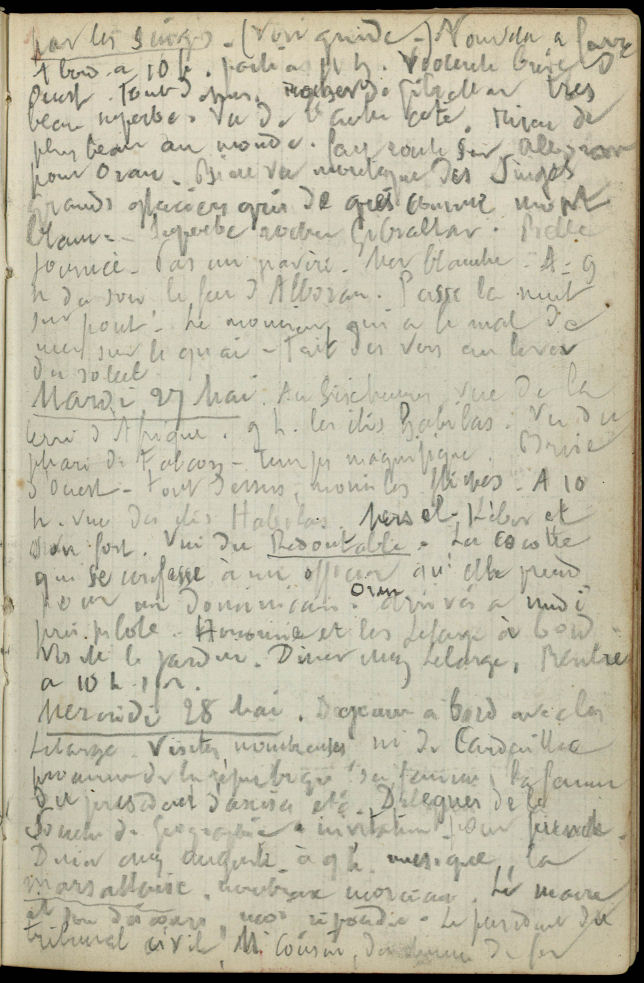 par les singes - (Voir guide -) Nouvelle à
A bord à 10 h. parti à 11 h. Violente brise d'
Ouest. Tout dessus. rocher de Gibraltar très
beau superbe. Vu de l'autre côté. rien de
plus beau au monde. fait route sur Alboran
pour Oran. Bien vu montagne des Singes
grands glaciers gris de comme mont
blanc - Superbe rocher Gibraltar. Belle
journée. Pas un navire. Mer blanche - A 9
h du soir le feu d'Alboran. Passe la nuit
sur pont. Le monsieur qui a le mal de
mer sur le quai - fait des vers au lever
du soleil
Mardi 27 Mai. vue de la
terre d'Afrique. 9 h. les îles Habibas. Vu du
phare de Falcon - temps magnifique. Brise
d'Ouest - tout dessus, moins les flèches. A 10
h. vue des îles Habibas. Mers el-Kébir et
son fort. Vu du Redoutable. La cocotte
qui se confesse à un officier qu'elle prend
pour un dominicain. Oran arrivés à midi
pris pilote. et les Lelarge à bord.
Visite le jardin. Dîner chez Lelarge, Rentre
à 10 h
Mercredi 28 Mai. Déjeuner à bord avec les
Lelarge. Visites nombreuses M. de Cardaillac
procureur de la république sa femme, la femme
du président d'assises etc. Délégués de la
Société de Géographie - invitation pour
Dîner chez Auguste - à 9 h. musique, la
marseillaise. nombreux morceaux. Le maire
et son discours, réponse. Le président du
tribunal civil, M. Cousin, du chemin de fer